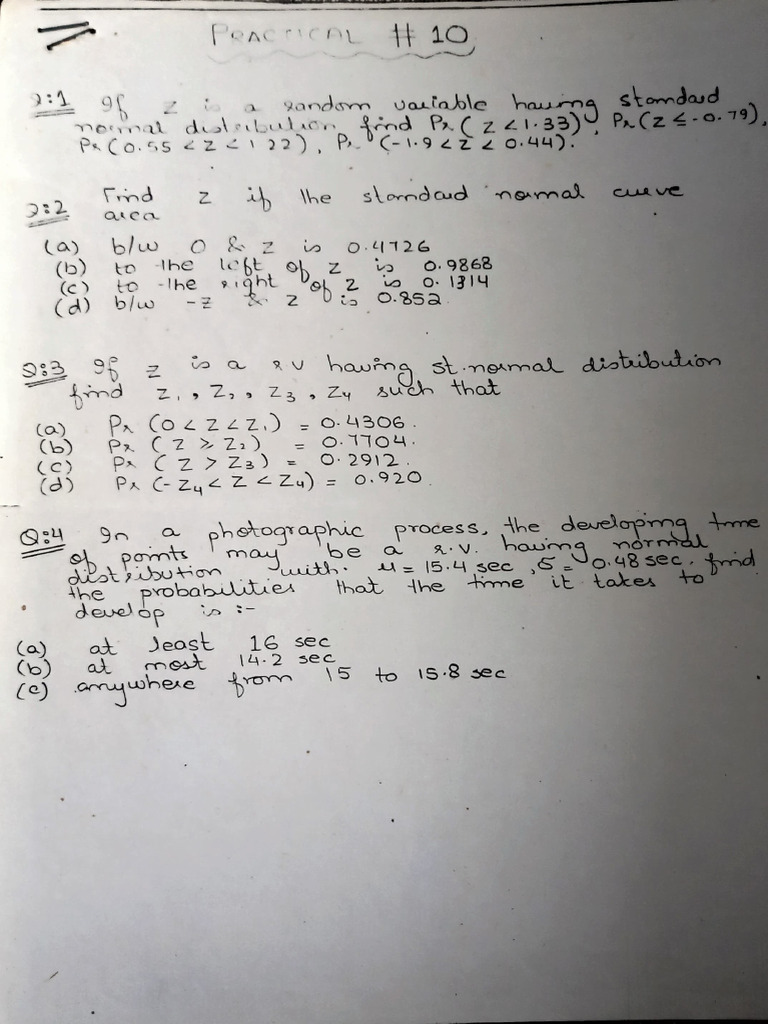 PRACTICAL # 10
Q:1 If z is a random variable having standard
normal distribution find Pr(Z<1.33), Pr(Z≤-0.79),
Pr(0.55<Z<1.22), Pr(-1.9<Z<0.44).
Q:2 Find z if the standard normal curve
area
(a) b/w 0 & z is 0.4726
(b) to the left of z is 0.9868
(c) to the right of z is 0.1314
(d) b/w -z & z is 0.852
Q:3 If z is a r v having st. normal distribution
find Z1, Z2, Z3, Z4 such that
(a) Pr (0<Z<Z1) = 0.4306.
(b) Pr (Z ≥ Z2) = 0.7704.
(c) Pr (Z > Z3) = 0.2912.
(d) Pr (-Z4< Z <Z4) = 0.920.
Q:4 In a photographic process, the developing time
of points may be a r.v. having normal
distribution with. μ= 15.4 sec, σ= 0.48 sec. find
the probabilities that the time it takes to
develop is :-
(a) at least 16 sec
(b) at most 14.2 sec
(c) anywhere from 15 to 15.8 sec